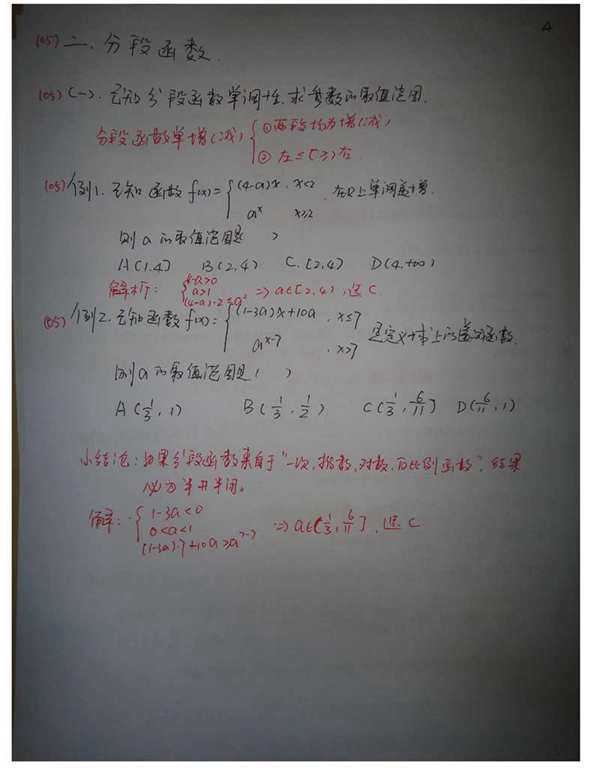 4
(05) 二、分段函数.
(05) (一). 已知分段函数单调性求参数的取值范围.
分段函数单增(减) { ①两段均为增(减)
② 左≤[≥]右
(05) 例1. 已知函数 f(x)= { (4-a)x, x<2
a^x x≥2
在R上单调递增.
则a的取值范围是( )
A(1.4) B(2,4) C.[2,4) D(4,+∞)
解析: { 4-a>0
a>1
(4-a)·2≤a²
⇒ a∈[2,4), 选C
(05) 例2. 已知函数 f(x)= { (1-3a)x+10a , x≤7
a^{x-7} , x>7
是定义域上的递减函数.
则a的取值范围是( )
A(1/3, 1) B(1/3, 1/2) C(1/3, 6/11] D(6/11, 1)
小结论: 如果分段函数来自于"一次,指数,对数,反比例函数", 结果
必为半开半闭。
解: { 1-3a<0
0<a<1
(1-3a)·7+10a≥a^{7-7}
⇒ a∈(1/3, 6/11], 选C